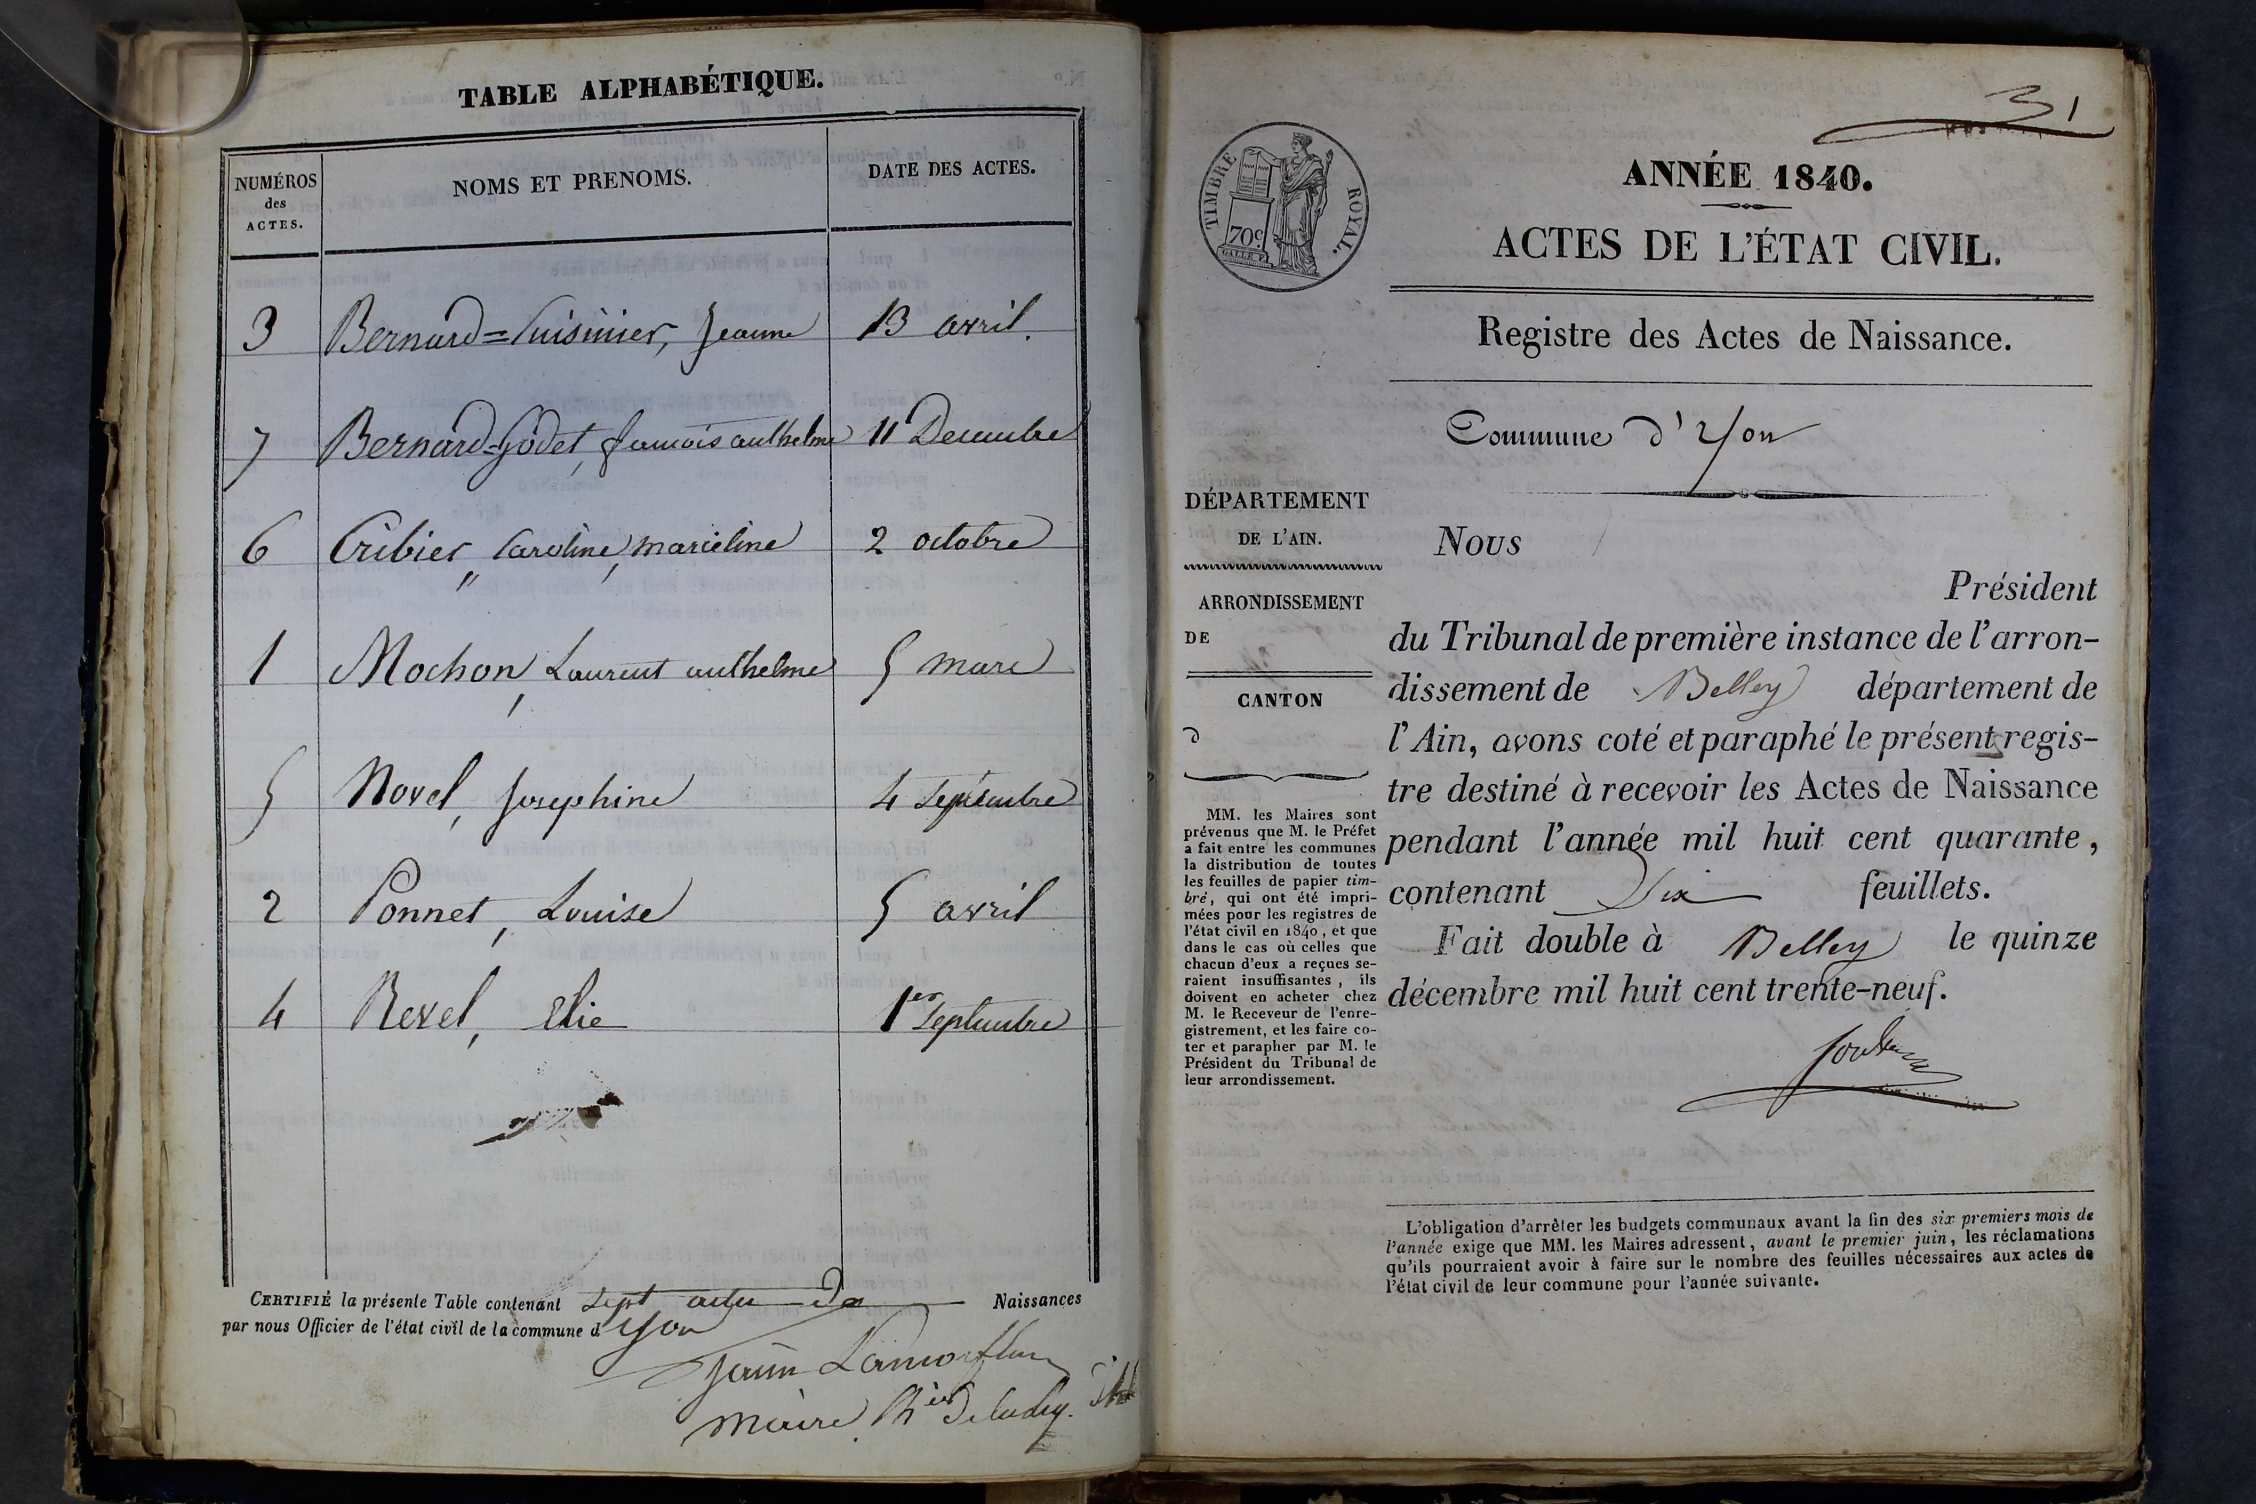 TABLE ALPHABÉTIQUE.
NUMÉROS des ACTES.
NOMS ET PRENOMS.
DATE DES ACTES.
3 Bernard=Cuisinier, Jeanne 13 avril.
7 Bernard=Godet, francois anthelme 11 Decembre
6 Cribier, Caroline, marieline 2 octobre
1 Mochon, Laurent anthelme 5 mars
5 Novel, Josephine 4 Septembre
2 Ponnet, Louise 5 avril
4 Revel, Elie 1er Septembre
CERTIFIÉ la présente Table contenant sept actes de Naissances
par nous Officier de l'état civil de la commune d'yon
maire
31
TIMBRE ROYAL.
70c
GALLE F.
ANNÉE 1840.
ACTES DE L'ÉTAT CIVIL.
Registre des Actes de Naissance.
Commune d'Yon
DÉPARTEMENT
DE L'AIN.
ARRONDISSEMENT
DE
CANTON
d
MM. les Maires sont
prévenus que M. le Préfet
a fait entre les communes
la distribution de toutes
les feuilles de papier tim-
bré, qui ont été impri-
mées pour les registres de
l'état civil en 1840, et que
dans le cas où celles que
chacun d'eux a reçues se-
raient insuffisantes, ils
doivent en acheter chez
M. le Receveur de l'enre-
gistrement, et les faire co-
ter et parapher par M. le
Président du Tribunal de
leur arrondissement.
Nous
Président
du Tribunal de première instance de l'arron-
dissement de Belley département de
l'Ain, avons coté et paraphé le présent regis-
tre destiné à recevoir les Actes de Naissance
pendant l'année mil huit cent quarante,
contenant Six feuillets.
Fait double à Belley le quinze
décembre mil huit cent trente-neuf.
L'obligation d'arrêter les budgets communaux avant la fin des six premiers mois de
l'année exige que MM. les Maires adressent, avant le premier juin, les réclamations
qu'ils pourraient avoir à faire sur le nombre des feuilles nécessaires aux actes de
l'état civil de leur commune pour l'année suivante.